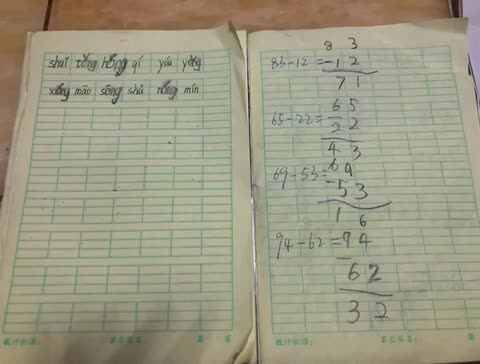 shuǐ tǒng hóng qí yáu yǒng
xióng māo sōng shǔ nóng mín
83-12=
8 3
-1 2
7 1
65-22=
6 5
-2 2
4 3
69-53=
6 9
-5 3
1 6
94-62=
9 4
-
6 2
3 2